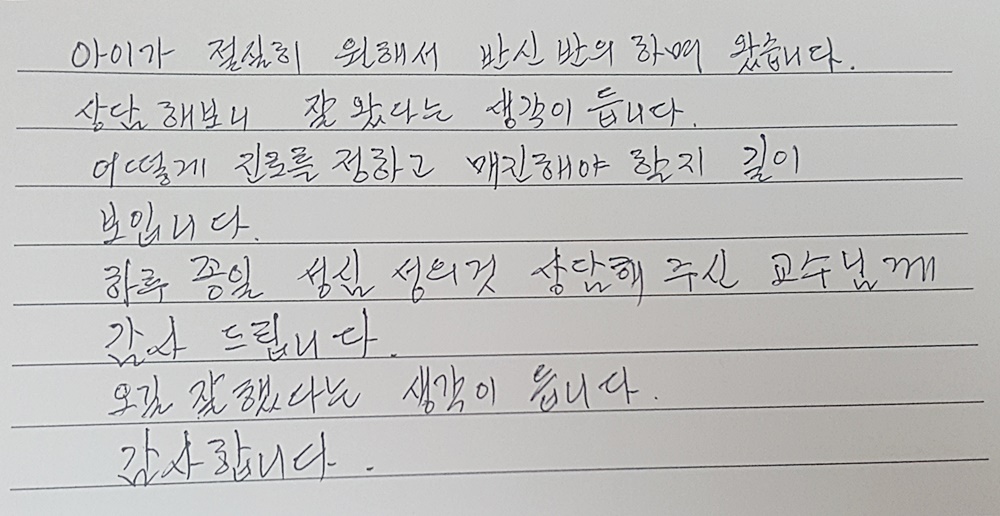 아이가 절실히 원해서 반신 반의 하며 왔습니다.
상담 해보니 잘 왔다는 생각이 듭니다.
어떻게 진로를 정하고 매진해야 할지 길이
보입니다.
하루 종일 성심 성의것 상담해 주신 교수님께
감사 드립니다.
오길 잘 했다는 생각이 듭니다.
감사합니다.